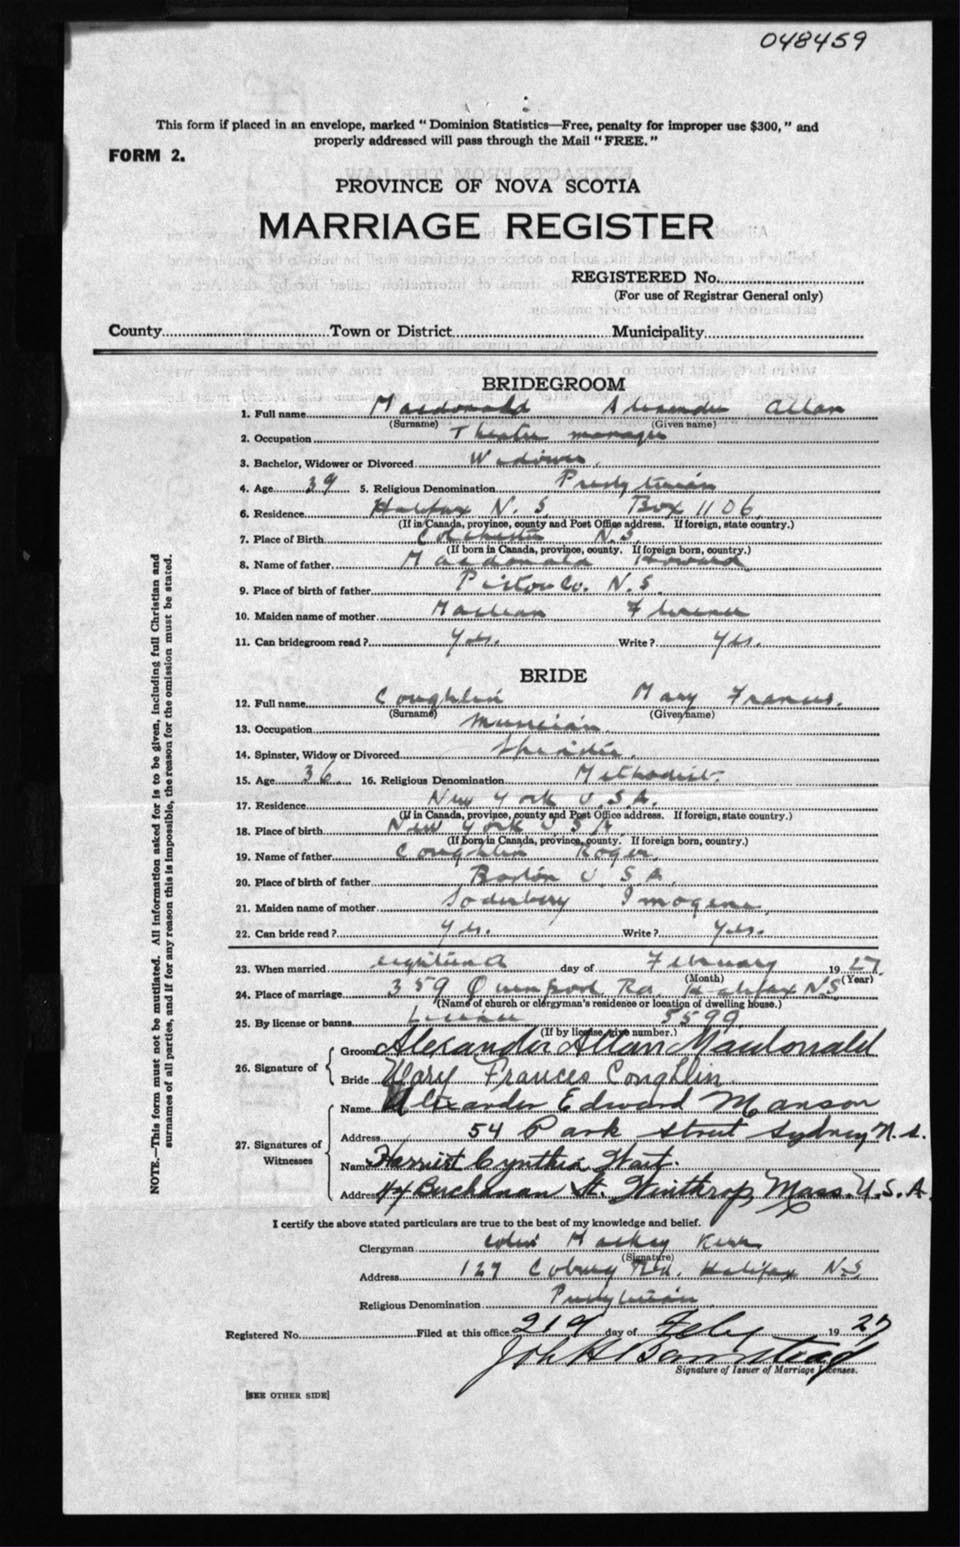 048459
This form if placed in an envelope, marked "Dominion Statistics—Free, penalty for improper use $300," and
properly addressed will pass through the Mail "FREE."
FORM 2.
PROVINCE OF NOVA SCOTIA
MARRIAGE REGISTER
REGISTERED No.
(For use of Registrar General only)
County Town or District Municipality
BRIDEGROOM
1. Full name Macdonald Alexander Allan
(Surname) (Given name)
2. Occupation Theatre manager
3. Bachelor, Widower or Divorced Widower.
4. Age 39 5. Religious Denomination Presbyterian
6. Residence Halifax N. S. Box 1106
(If in Canada, province, county and Post Office address. If foreign, state country.)
7. Place of Birth Colchester N.S.
(If born in Canada, province, county. If foreign born, country.)
8. Name of father Macdonald Howard
9. Place of birth of father Pictou Co. N.S.
10. Maiden name of mother Maclean Florence
11. Can bridegroom read? Yes. Write? Yes.
BRIDE
12. Full name Coughlin Mary Frances.
(Surname) (Given name)
13. Occupation Musician.
14. Spinster, Widow or Divorced Spinster.
15. Age 36 16. Religious Denomination Methodist.
17. Residence New York U.S.A.
(If in Canada, province, county and Post Office address. If foreign, state country.)
18. Place of birth New York U S A.
(If born in Canada, province, county. If foreign born, country.)
19. Name of father Coughlin Roger.
20. Place of birth of father Boston U.S.A.
21. Maiden name of mother Soderbery Imogene.
22. Can bride read? Yes. Write? Yes.
23. When married eighteenth day of February 1927
(Month) (Year)
24. Place of marriage 359 Quinpool Rd. Halifax NS
(Name of church or clergyman's residence or location of dwelling house.)
25. By license or banns License 5599
(If by license, give number.)
26. Signature of Groom Alexander Allan Macdonald
Bride Mary Frances Coughlin
27. Signatures of Witnesses Name Alexander Edward Manson
Address 54 Park Street Sydney N.S.
Name Harriet Cynthia
Address 44 Buchanan St. Winthrop Mass. U.S.A.
I certify the above stated particulars are true to the best of my knowledge and belief.
Clergyman Colin Mackay Kerr
(Signature)
Address 127 Coburg Rd. Halifax N.S
Religious Denomination Presbyterian
Registered No. Filed at this office 21st day of Feby 1927
Signature of Issuer of Marriage Licenses.
[SEE OTHER SIDE]
NOTE.—This form must not be mutilated. All information asked for is to be given, including full Christian and
surnames of all parties, and if for any reason this is impossible, the reason for the omission must be stated.